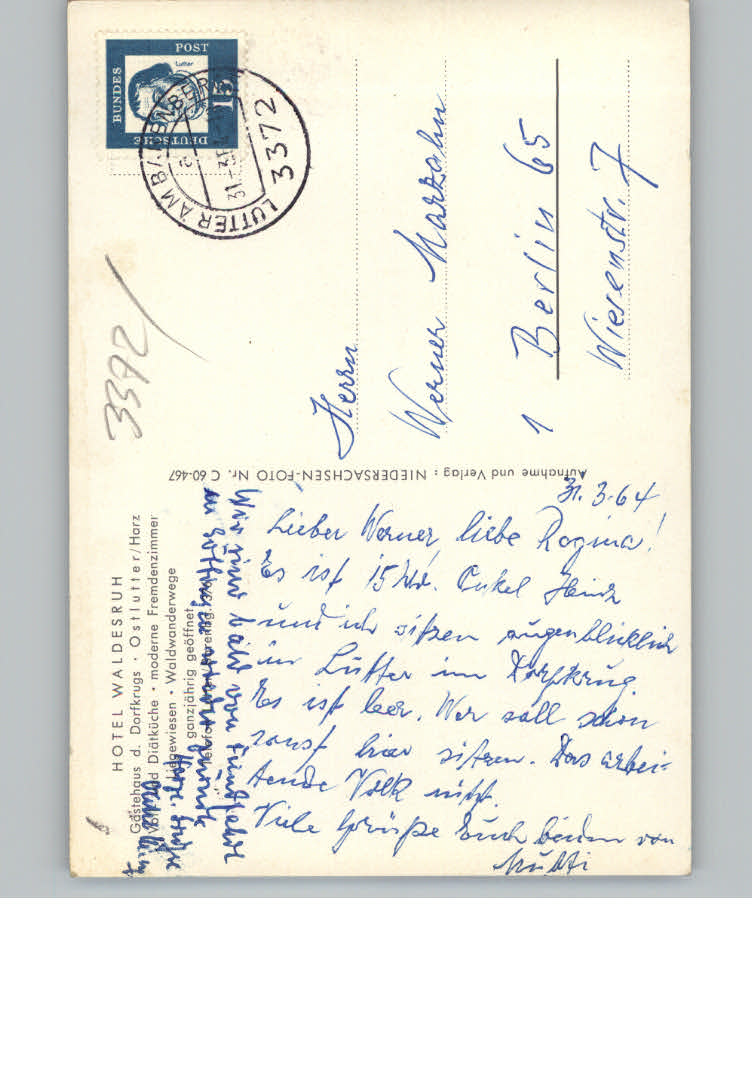 HOTEL WALDESRUH
Gästehaus d. Dorfkrugs · Ostlutter/Harz
Voll- und Diätküche · moderne Fremdenzimmer
Liegewiesen · Waldwanderwege
ganzjährig geöffnet
31.3.64
Lieber Werner, liebe Regina!
Es ist 15 Uhr. Onkel Heinz
und ich sitzen augenblicklich
in Lutter im Dorfkrug.
Es ist leer. Wer soll schon
sonst hier sitzen. Das arbei-
tende Volk nicht.
Viele Grüße Euch beiden von
Mutti
Wir sind bald von
in Göttingen
Herzl. Grüße
Aufnahme und Verlag: NIEDERSACHSEN-FOTO Nr. C 60-467
3372
DEUTSCHE
BUNDES
POST
15
Luther
LUTTER AM BARENBERGE
a
31-3
3372
Herrn
Werner Marzahn
1 Berlin 65
Wiesenstr. 7